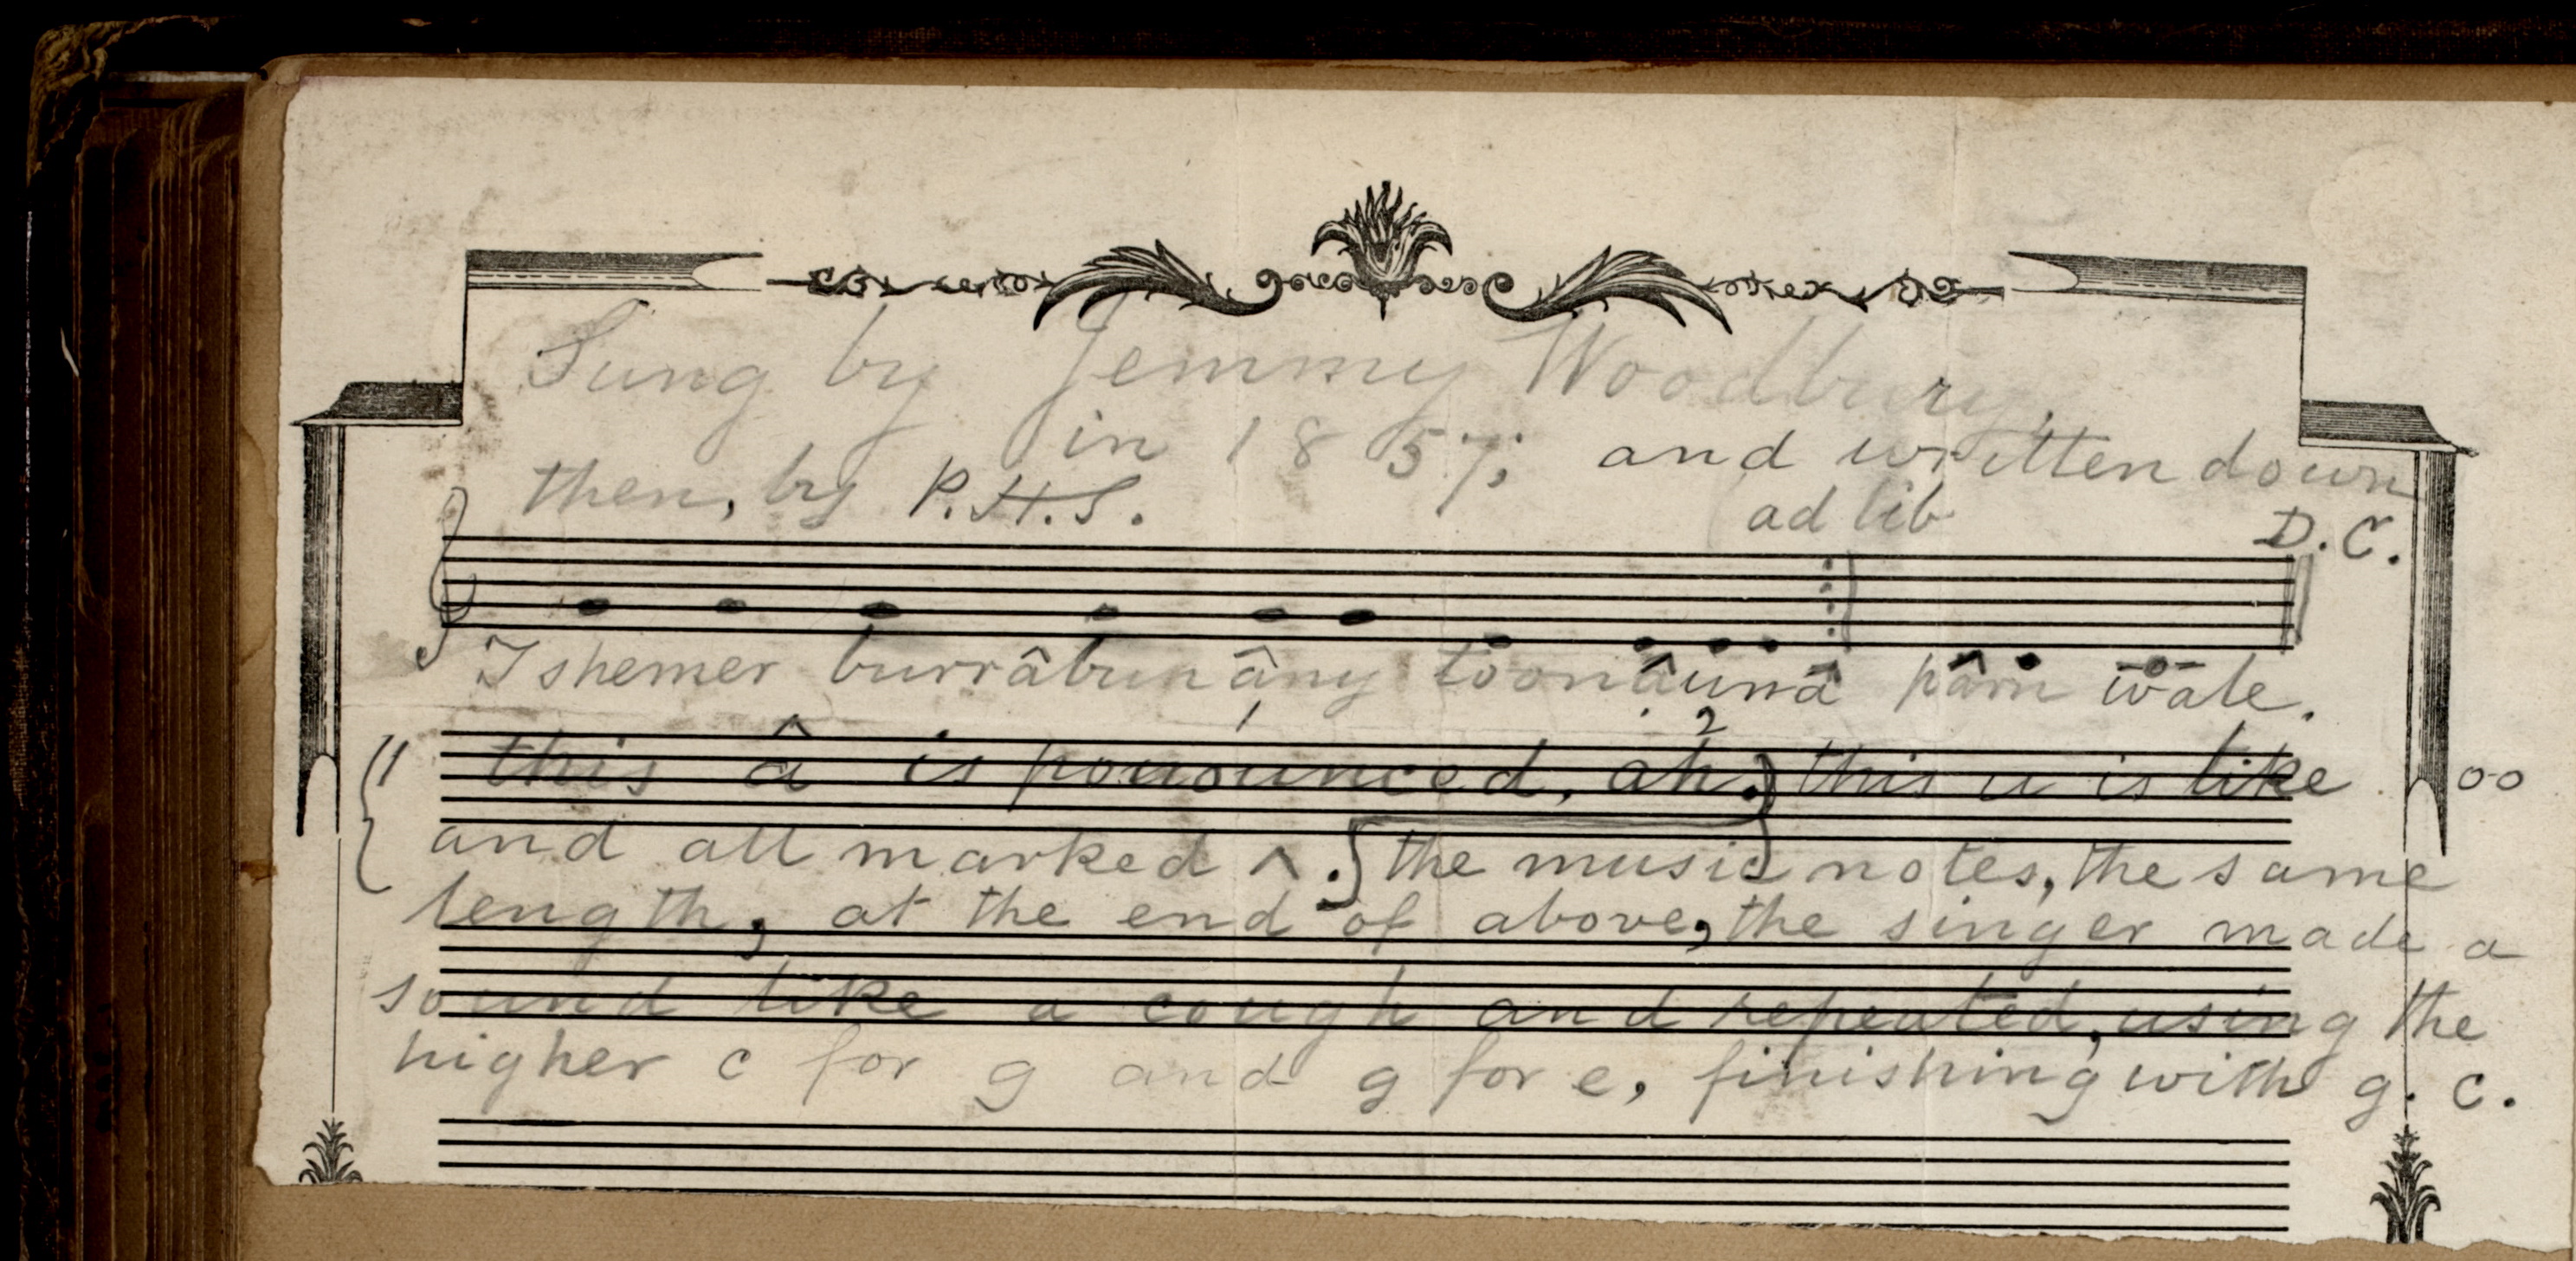 Sung by Jemmy Woodbury,
in 1857; and written down
then, by P.H.S.
ad lib D.C.
Ishemer burrâbunâng toonâunâ pârn wale.
1 2
" this â is pronounced, ah.) this u is like oo
and all marked ^. the music notes, the same
length, at the end of above, the singer made a
sound like a cough and repeated, using the
higher c for g and g for e, finishing with g. c.